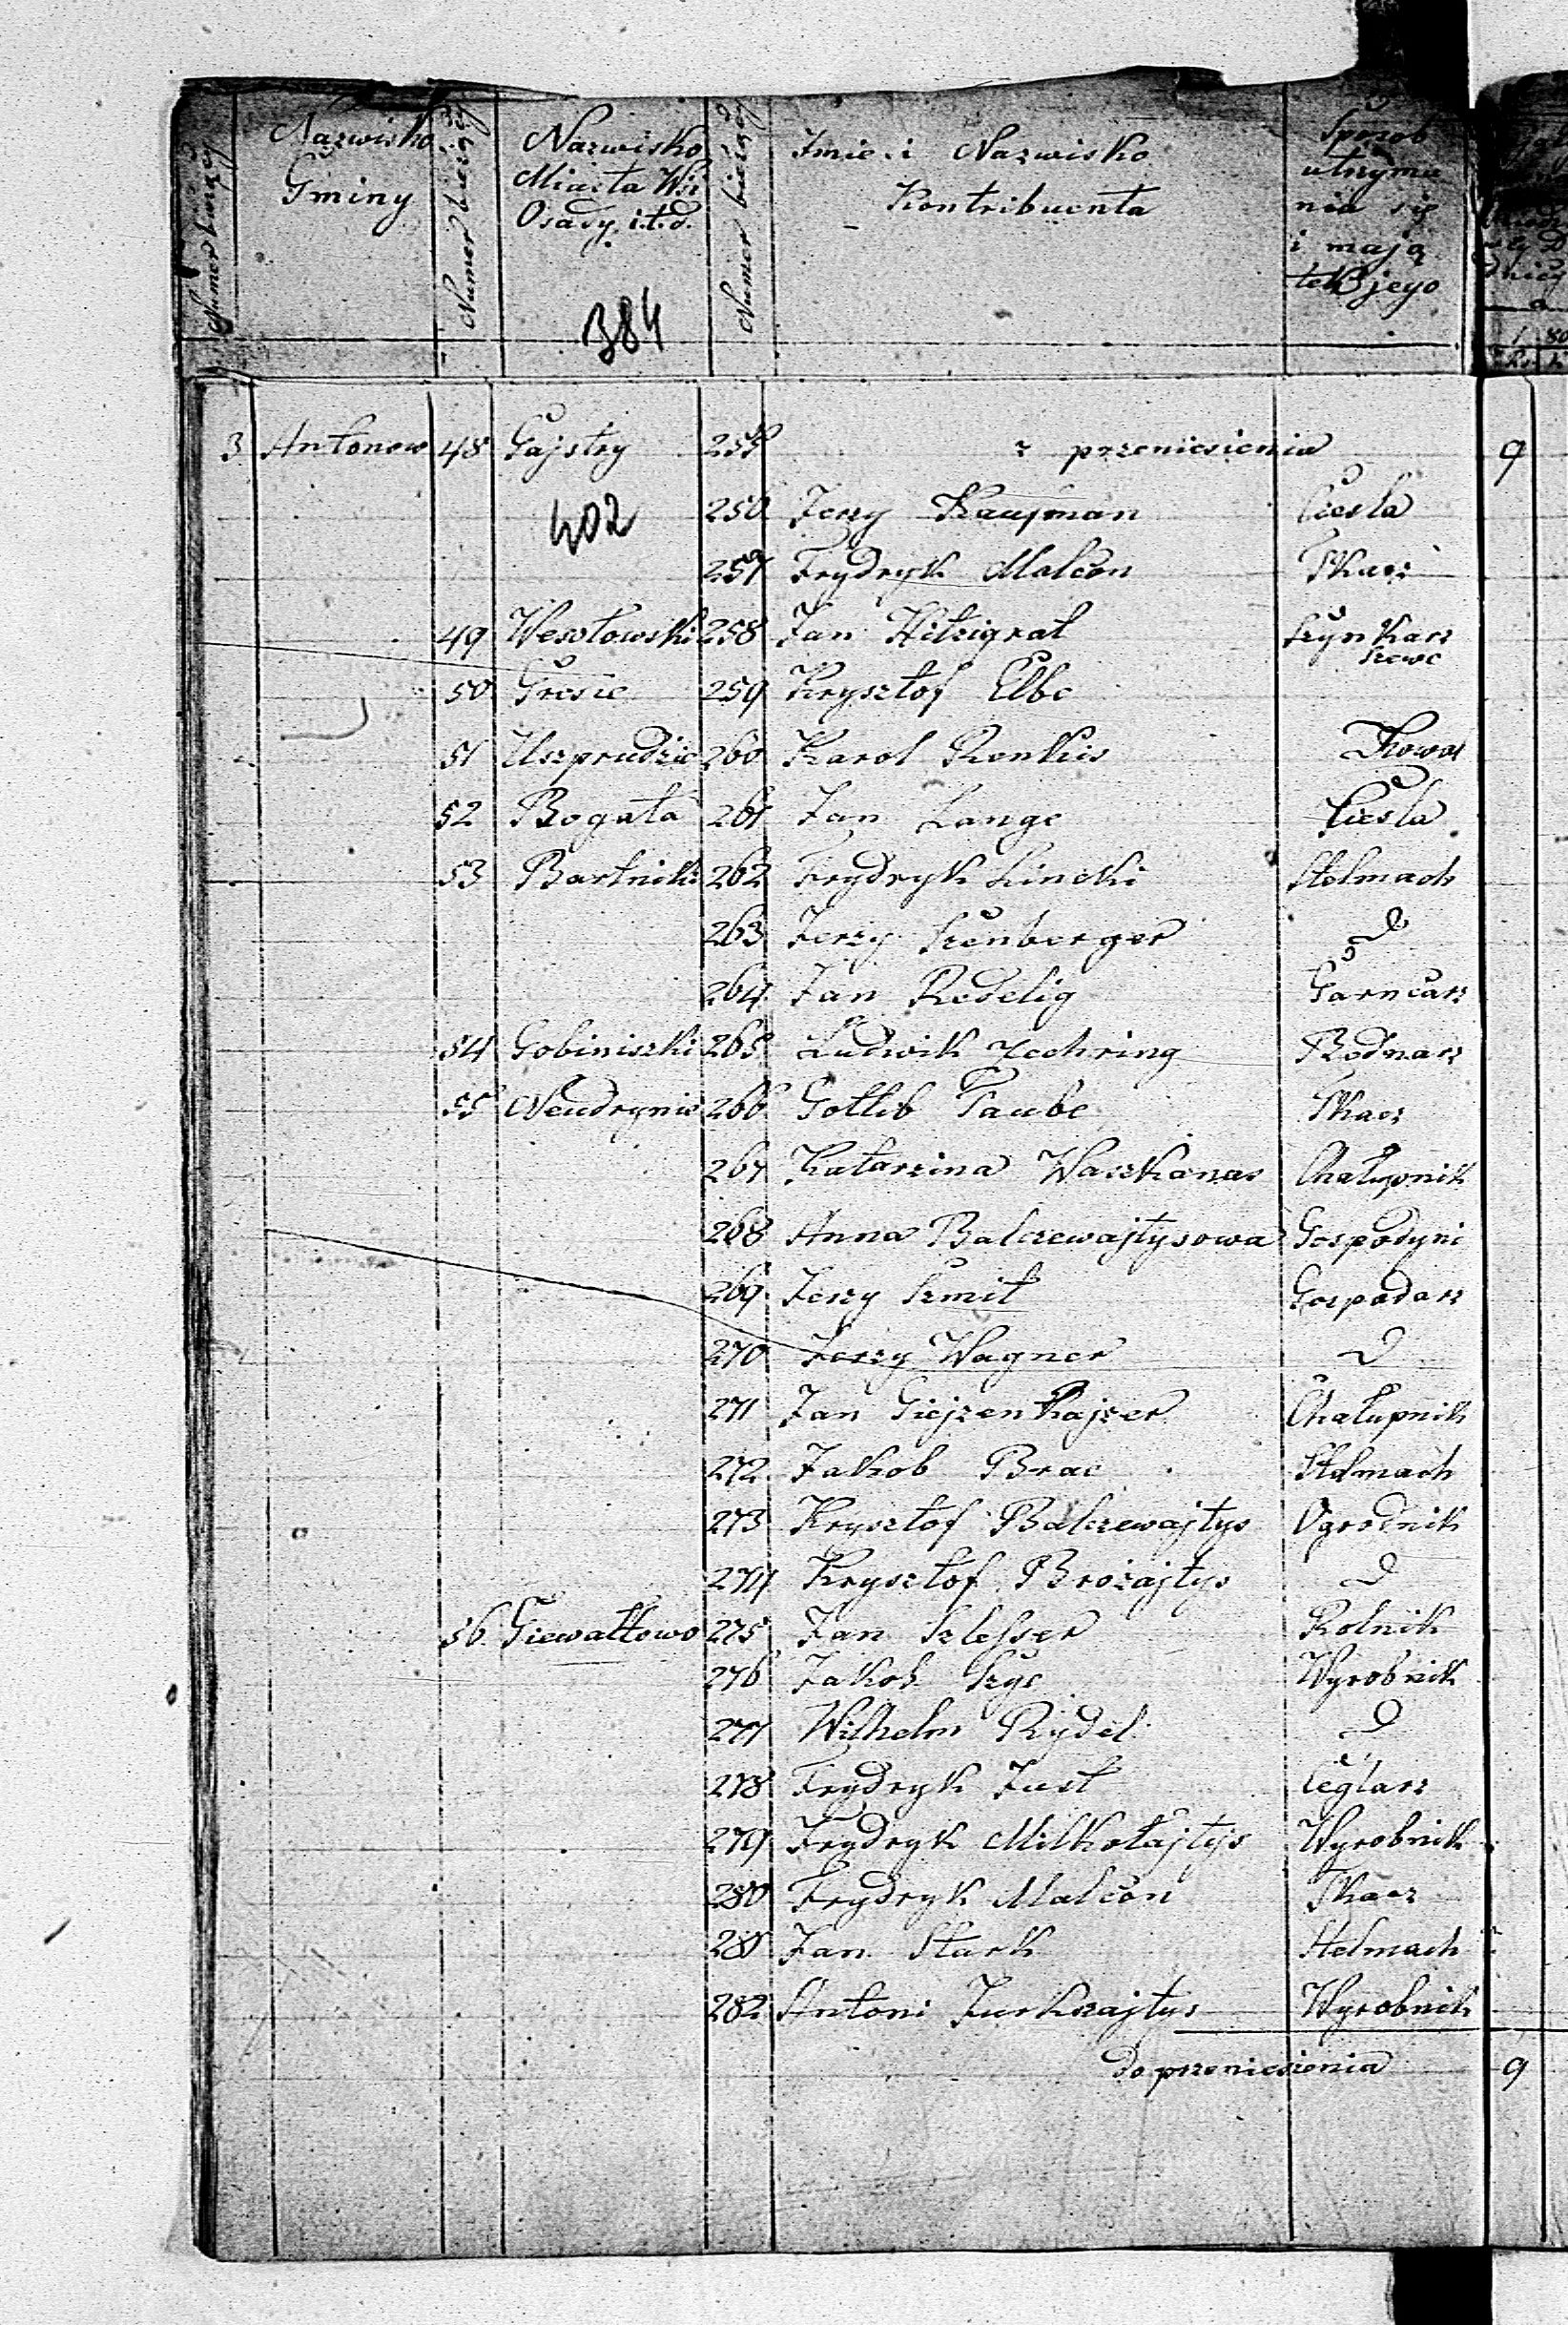 Numer bieżący
Nazwisko Gminy
Numer bieżący
Nazwisko Miasta Wsi Osady. i.t.d.
Numer bieżący
Imie i Nazwisko Kontribuenta
Sposob utrzyma nia się i mają tek jego
384
3 Antonow 48 Gajstry 255 z przeniesienia 9
402
256 Jerzy Kaufman Ciesla
257 Frydryk Malcon Tkacz
49 Wesołowski 258 Jan Hitzigrat Szynkarz
Szewc
50 Gresie 259 Krysztof Elbe
51 Uszprudzie 260 Karol Renkis Kowal
52 Bogata 261 Jan Lange Ciesla
53 Bartniki 262 Frydryk Lincki Stelmach
263 Jerzy Szenberger D
264 Jan Redelig Garncarz
54 Gobiniszki 265 Ludwik Zechring Bednarz
55 Nendrynie 266 Gotlib Taube Tkacz
267 Katarzina Waszkanas Chałupnik
268 Anna Balczewajtysowa Gospodyni
269 Jerzy Szmit Gospodarz
270 Jerzy Wagner D
271 Jan Giejzenkajzer Chałupnik
272 Jakob Brac Stelmach
273 Krysztof Balczewajtys Ogrodnik
274 Krysztof Brożajtys D
56 Giewałtowo 275 Jan Szlesser Rolnik
276 Jakob Szyc Wyrobnik
277 Wilhelm Rydel D
278 Frydryk Just Ceglarz
279 Frydryk Milkołajtys Wyrobnik
280 Frydryk Malcon Tkacz
281 Jan Stark Stelmach
282 Antoni Jurkszajtys Wyrobnik
do przeniesienia 9